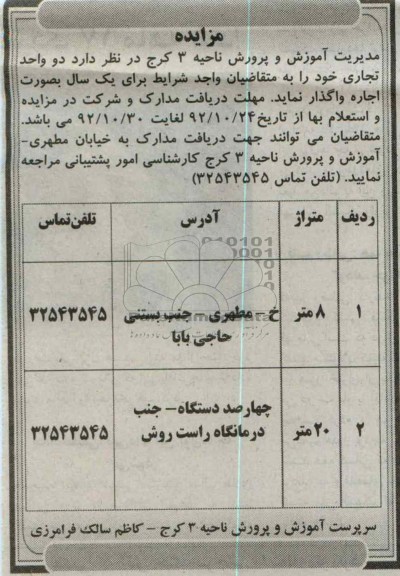 مزایده
مدیریت آموزش و پرورش ناحیه ۳ کرج در نظر دارد دو واحد
تجاری خود را به متقاضیان واجد شرایط برای یک سال بصورت
اجاره واگذار نماید. مهلت دریافت مدارک و شرکت در مزایده
و استعلام بها از تاریخ ۹۲/۱۰/۲۴ لغایت ۹۲/۱۰/۳۰ می باشد.
متقاضیان می توانند جهت دریافت مدارک به خیابان مطهری-
آموزش و پرورش ناحیه ۳ کرج کارشناسی امور پشتیبانی مراجعه
نمایید. (تلفن تماس ۳۲۵۴۳۵۴۵)
ردیف متراژ آدرس تلفن‌تماس
۱ ۸ متر خ - مطهری - جنب بستنی حاجی بابا ۳۲۵۴۳۵۴۵
۲ ۲۰ متر چهارصد دستگاه- جنب درمانگاه راست روش ۳۲۵۴۳۵۴۵
سرپرست آموزش و پرورش ناحیه ۳ کرج - کاظم سالک فرامرزی